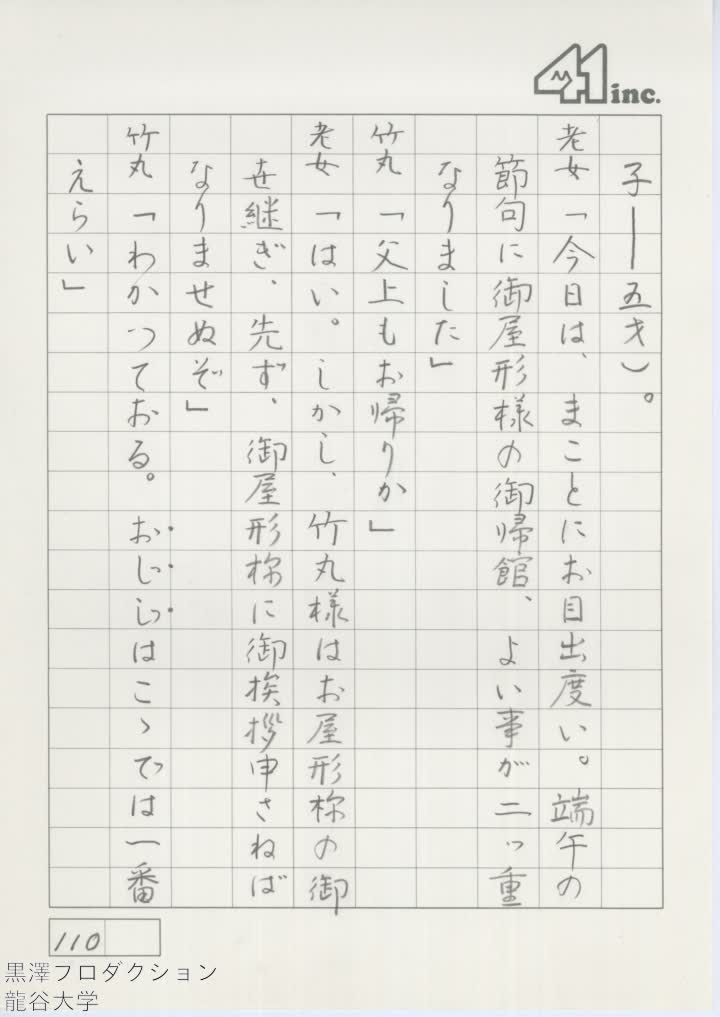 41 inc.
子――五才）。
老女「今日は、まことにお目出度い。端午の
節句に御屋形様の御帰館、よい事が二ッ重
なりました」
竹丸「父上もお帰りか」
老女「はい。しかし、竹丸様はお屋形様の御
世継ぎ、先ず、御屋形様に御挨拶申さねば
なりませぬぞ」
竹丸「わかっておる。おじじはこゝでは一番
えらい」
110
黒澤フロダクション
龍谷大学